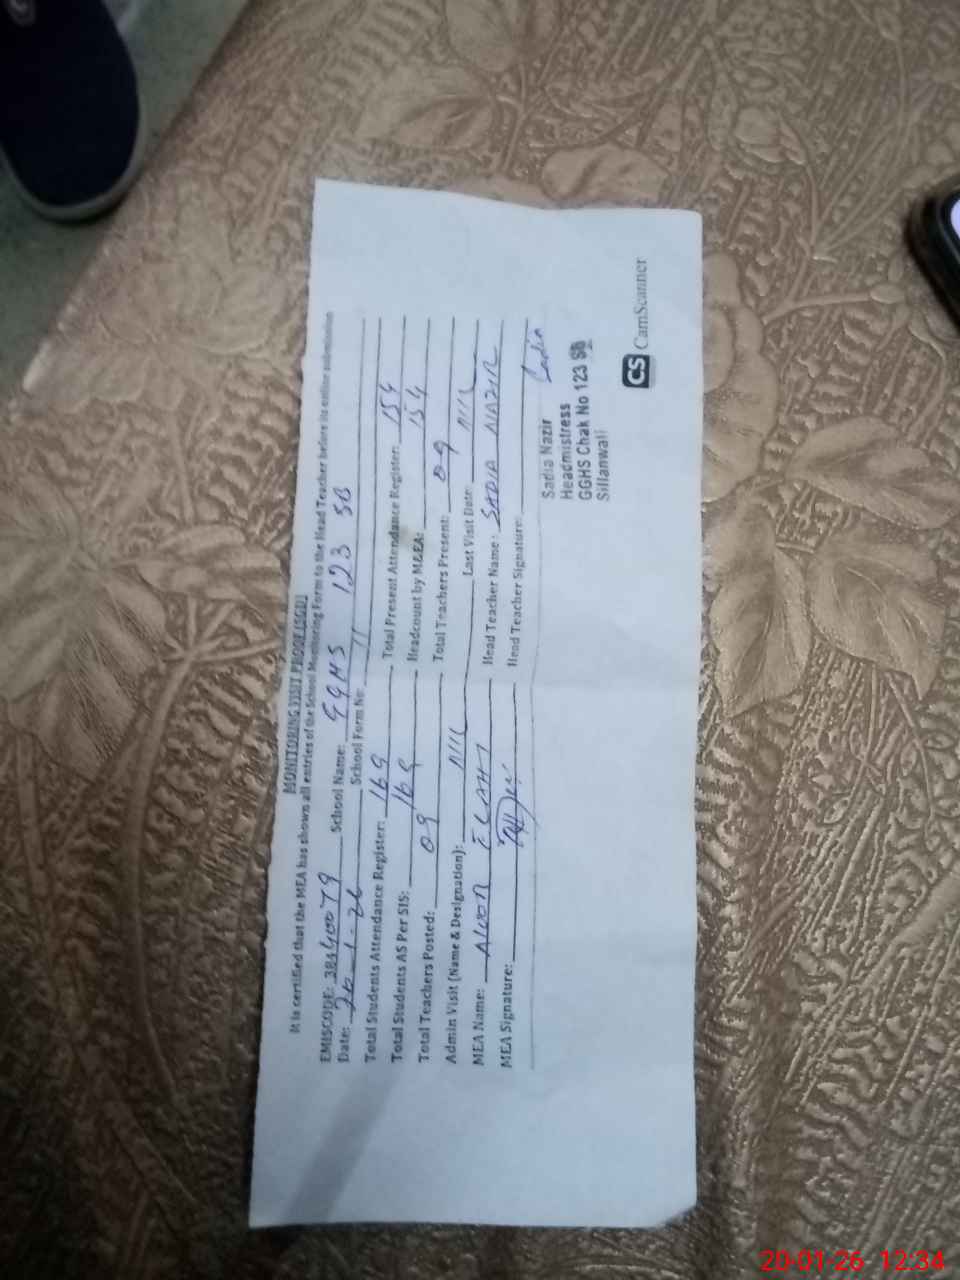 MONITORING VISIT PROOF (SGD)
It is certified that the MEA has shown all entries of the School Monitoring Form to the Head Teacher before its online submission
EMISCODE: 38440079 School Name: GGHS 123 SB
Date: 20-1-26 School Form No: 11
Total Students Attendance Register: 169 Total Present Attendance Register: 154
Total Students AS Per SIS: 169 Headcount by M&EA: 154
Total Teachers Posted: 09 Total Teachers Present: 09
Admin Visit (Name & Designation): Nill Last Visit Date: Nill
MEA Name: ELAHI Head Teacher Name: SADIA NAZIR
MEA Signature: Head Teacher Signature: Sadia
Sadia Nazir
Headmistress
GGHS Chak No 123 SB
Sillanwali
CS CamScanner
20-01-26 12:34